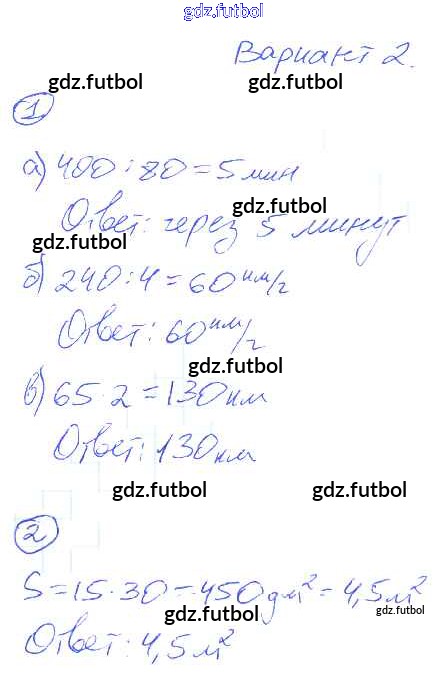 gdz.futbol
Вариант 2.
gdz.futbol gdz.futbol
1
а) 400 : 80 = 5 мин
gdz.futbol
Ответ: через 5 минут
gdz.futbol
б) 240 : 4 = 60 км/ч
Ответ: 60 км/ч
gdz.futbol
в) 65 · 2 = 130 км
Ответ: 130 км
gdz.futbol gdz.futbol
2
S = 15 · 30 = 450 дм² = 4,5 м²
gdz.futbol gdz.futbol
Ответ: 4,5 м²